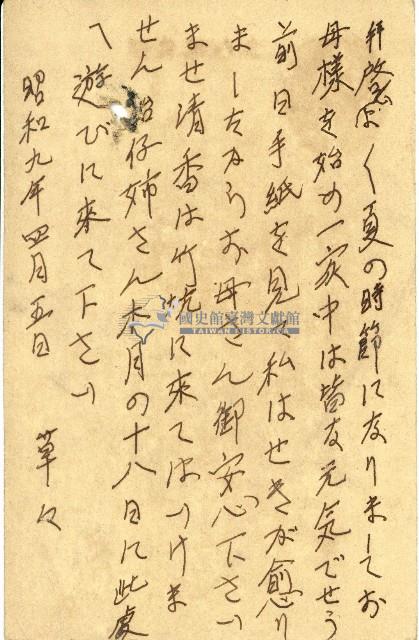 拜啓愈よく夏の時節になりましてお
母樣を始め一家中は皆な元気でせう
前日手紙を見て私はせきが愈り
ましたからお母さん御安心下さい
ませ清香は竹坑に來てはいけま
せん 仔姉さん本月の十八日に此處
へ遊びに來て下さい
昭和九年四月五日 草々
國史館臺灣文獻館
TAIWAN HISTORICA